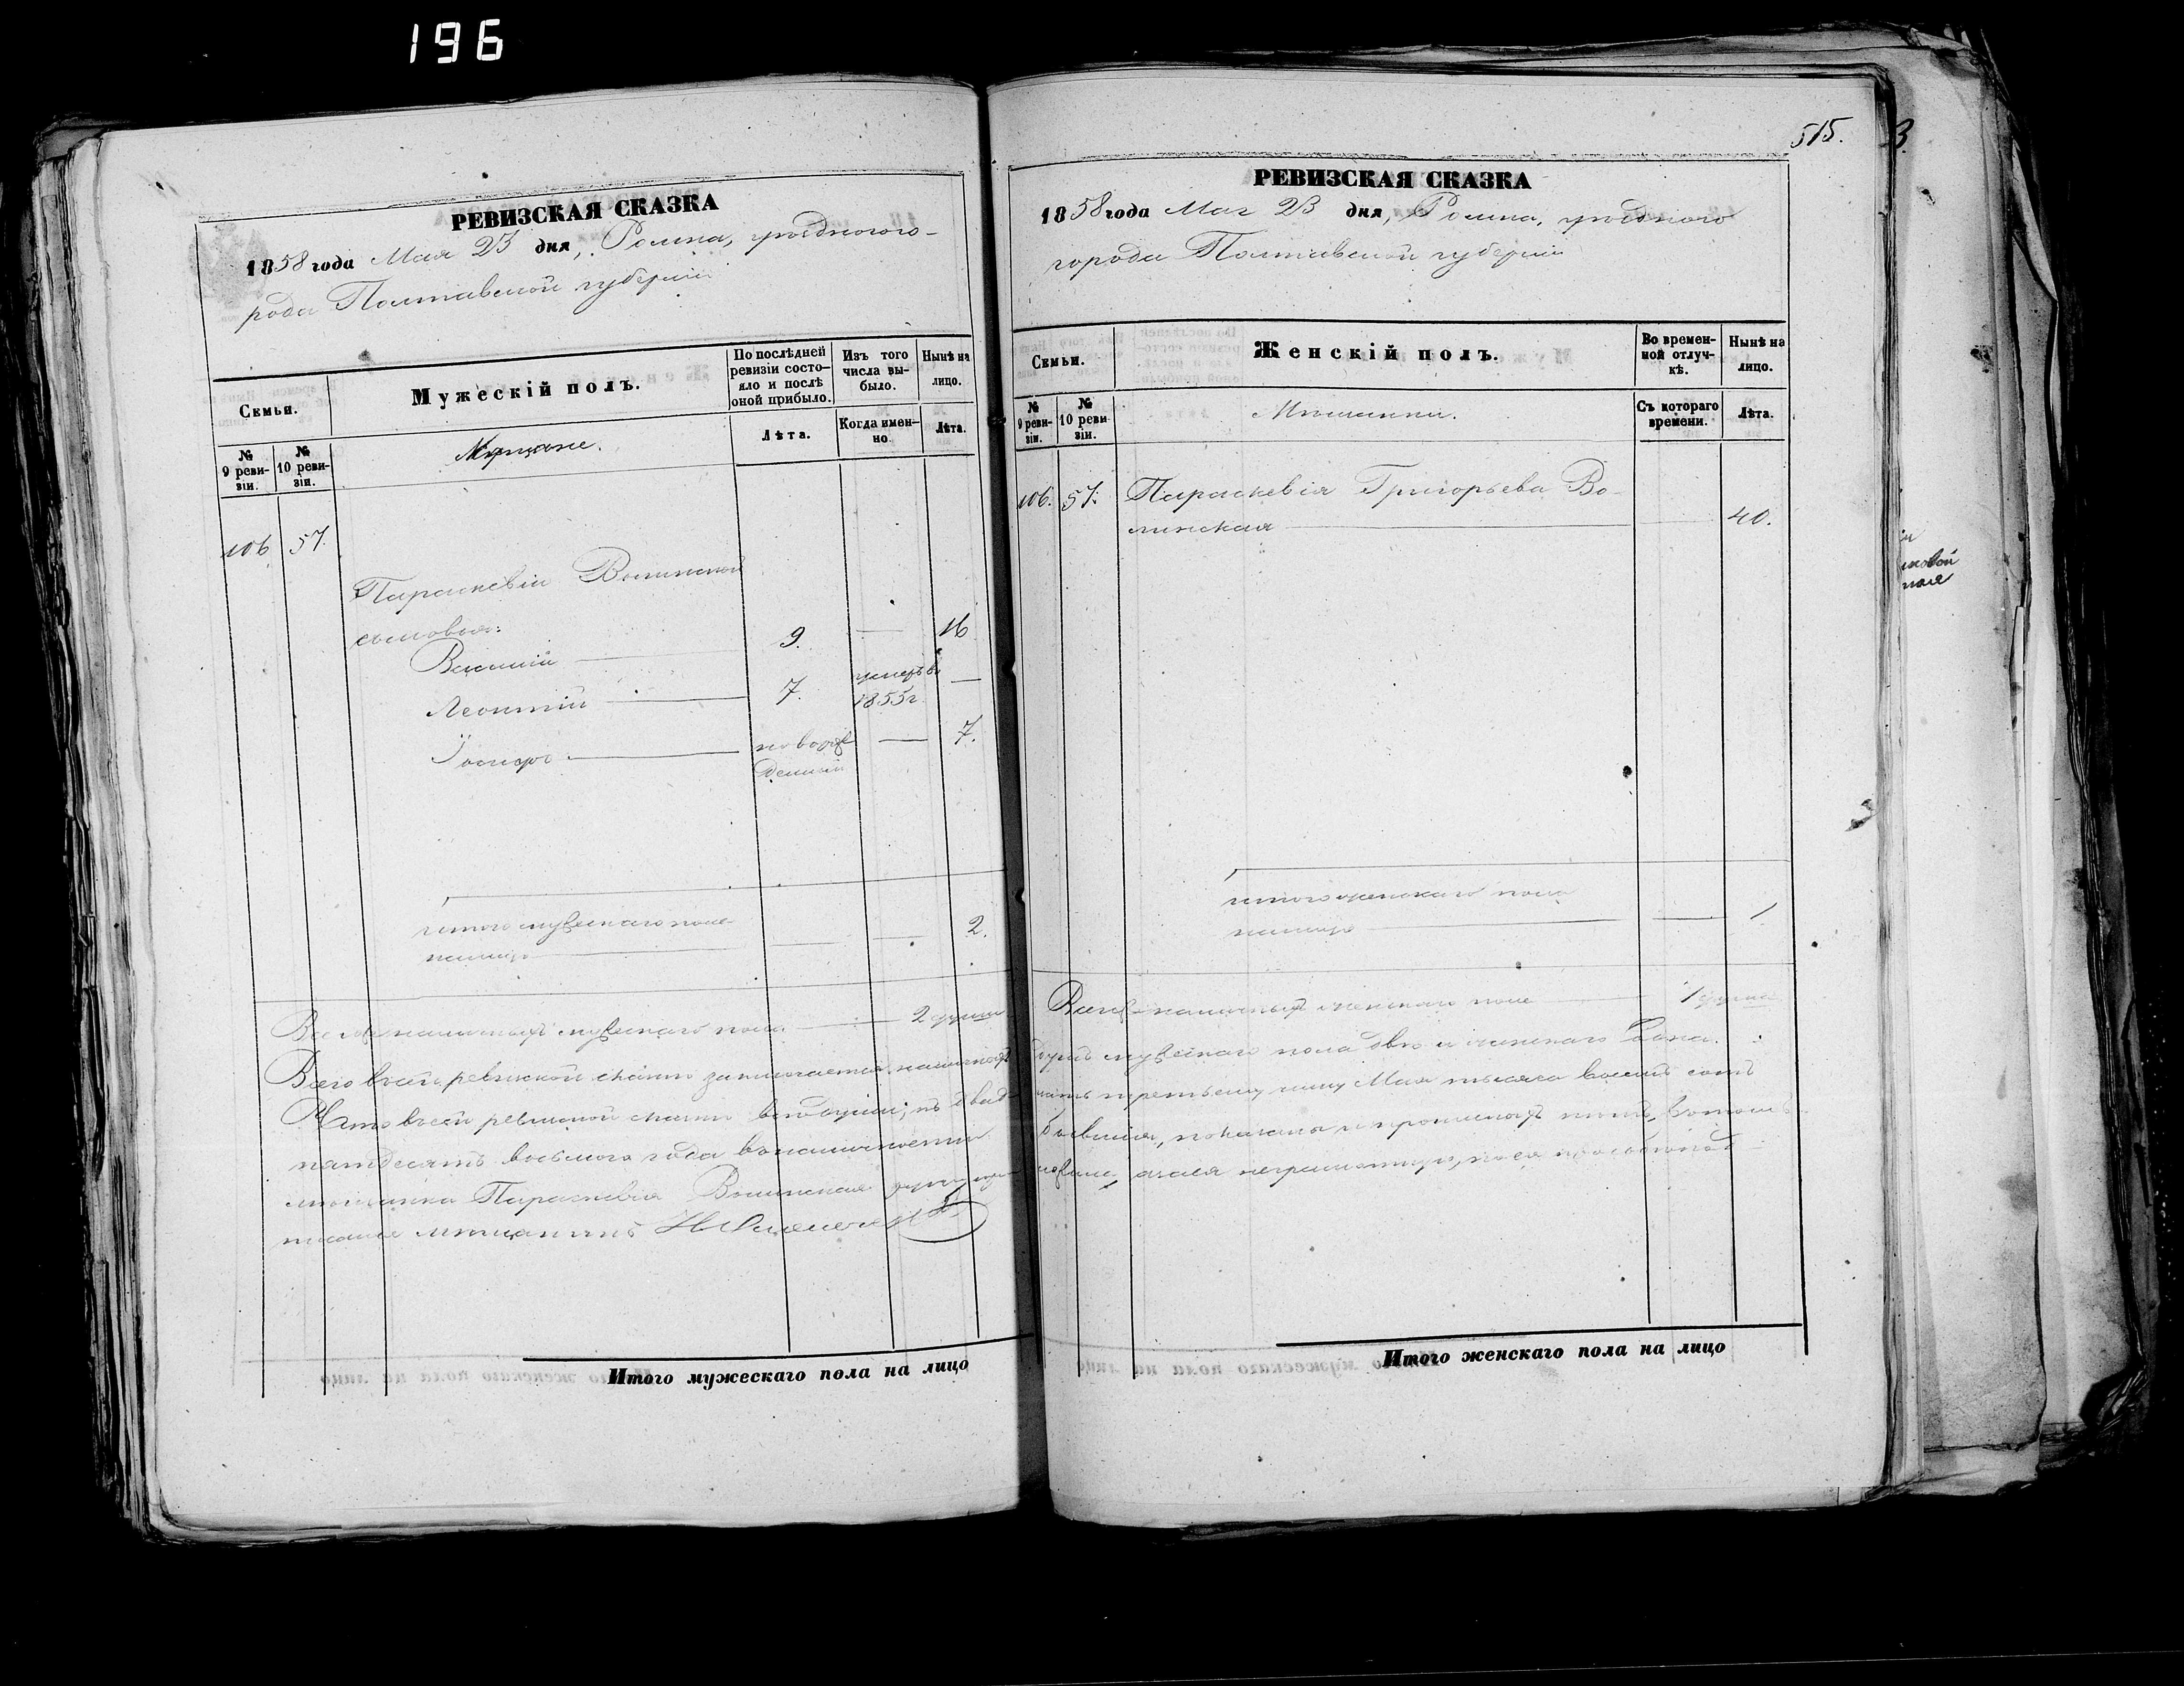 196
РЕВИЗСКАЯ СКАЗКА
1858 года Мая 23 дня, Ромна, уѣзднаго го-
рода Полтавской губерніи
Семьи.
Мужескій полъ.
По послѣдней
ревизіи состо-
яло и послѣ
оной прибыло.
Изъ того
числа вы-
было.
Нынѣ на
лицо.
№
9 реви-
зіи.
№
10 реви-
зіи.
Мѣщане.
Лѣта.
Когда имен-
но.
Лѣта.
106 57.
Параскевіи Волинской
сыновья:
Василій 9. — 16
Леонтій 7. умеръ въ
1855 г. —
новорож
денный — 7.
итого мужескаго пола
налицо — — 2.
515.
РЕВИЗСКАЯ СКАЗКА
1858 года Мая 23 дня, Ромна, уѣзднаго
города Полтавской губерніи
Семьи.
Женскій полъ.
Во времен-
ной отлуч-
кѣ.
Нынѣ на
лицо.
№
9 реви-
зіи.
№
10 реви-
зіи.
Мѣщанки.
Съ котораго
времени.
Лѣта.
106. 57. Параскевія Григорьева Во-
линская — 40.
итого женскаго пола
налицо — 1
Всего наличныхъ мужескаго пола — 2 души
Всего наличныхъ женскаго пола 1 душа
Всего въ сей ревизской сказкѣ заключается наличныхъ душъ мужескаго пола двѣ и женскаго одна.
Что въ сей ревизской сказкѣ всѣ души, къ двад цать третьему числу Мая тысяча восемь сотъ
пятдесятъ восьмого года въ наличности бывшія, показаны и пропис­ныхъ нѣтъ, въ томъ
мѣщанка Параскевія Волинская
мѣщанинъ
Итого мужескаго пола на лицо
Итого женскаго пола на лицо